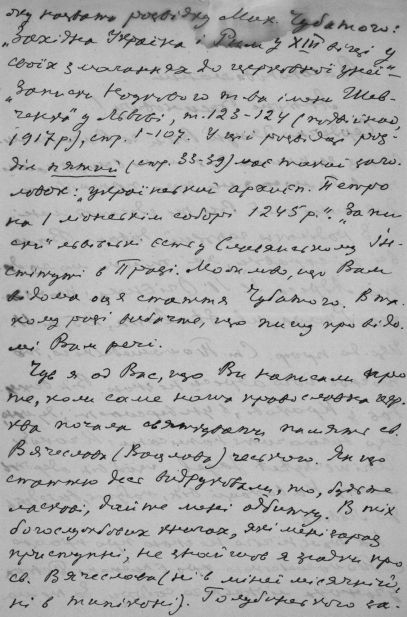 розвідку Мик. Чубатого:
„Західна Україна і Рим у XIII віці у
своїх змаганнях до церковної унії" —
„Записки Наукового т-ва імени Шев-
ченка" у Львові, т. 123-124 (подвійний,
1917 р.), стр. 1-107. У цій розвідці роз-
діл пятий (стр. 33-39) має такий заго-
ловок: „Український архиєп. Петро
на I ліонськім соборі 1245 р.". „Запи
ски" львівські єсть у Славянському Ін-
ституті в Празі. Можливо, що Вам
відома оця стаття Чубатого. В та-
кому разі вибачте, що пишу про відо-
мі Вам речі.
Чув я од Вас, що Ви написали про
те, коли саме наша православна цер-
ква почала святкувати память св.
Вячеслава (Вацлава) чеського. Якщо
статтю десь видруковали, то, будьте
ласкаві, дайте мені одбитку. В тіх
богослужбових книгах, які мені зараз
приступні, не знайшов я згадки про
св. Вячеслава (ні в мінеї місячній,
ні в типіконі). Голубинського за-